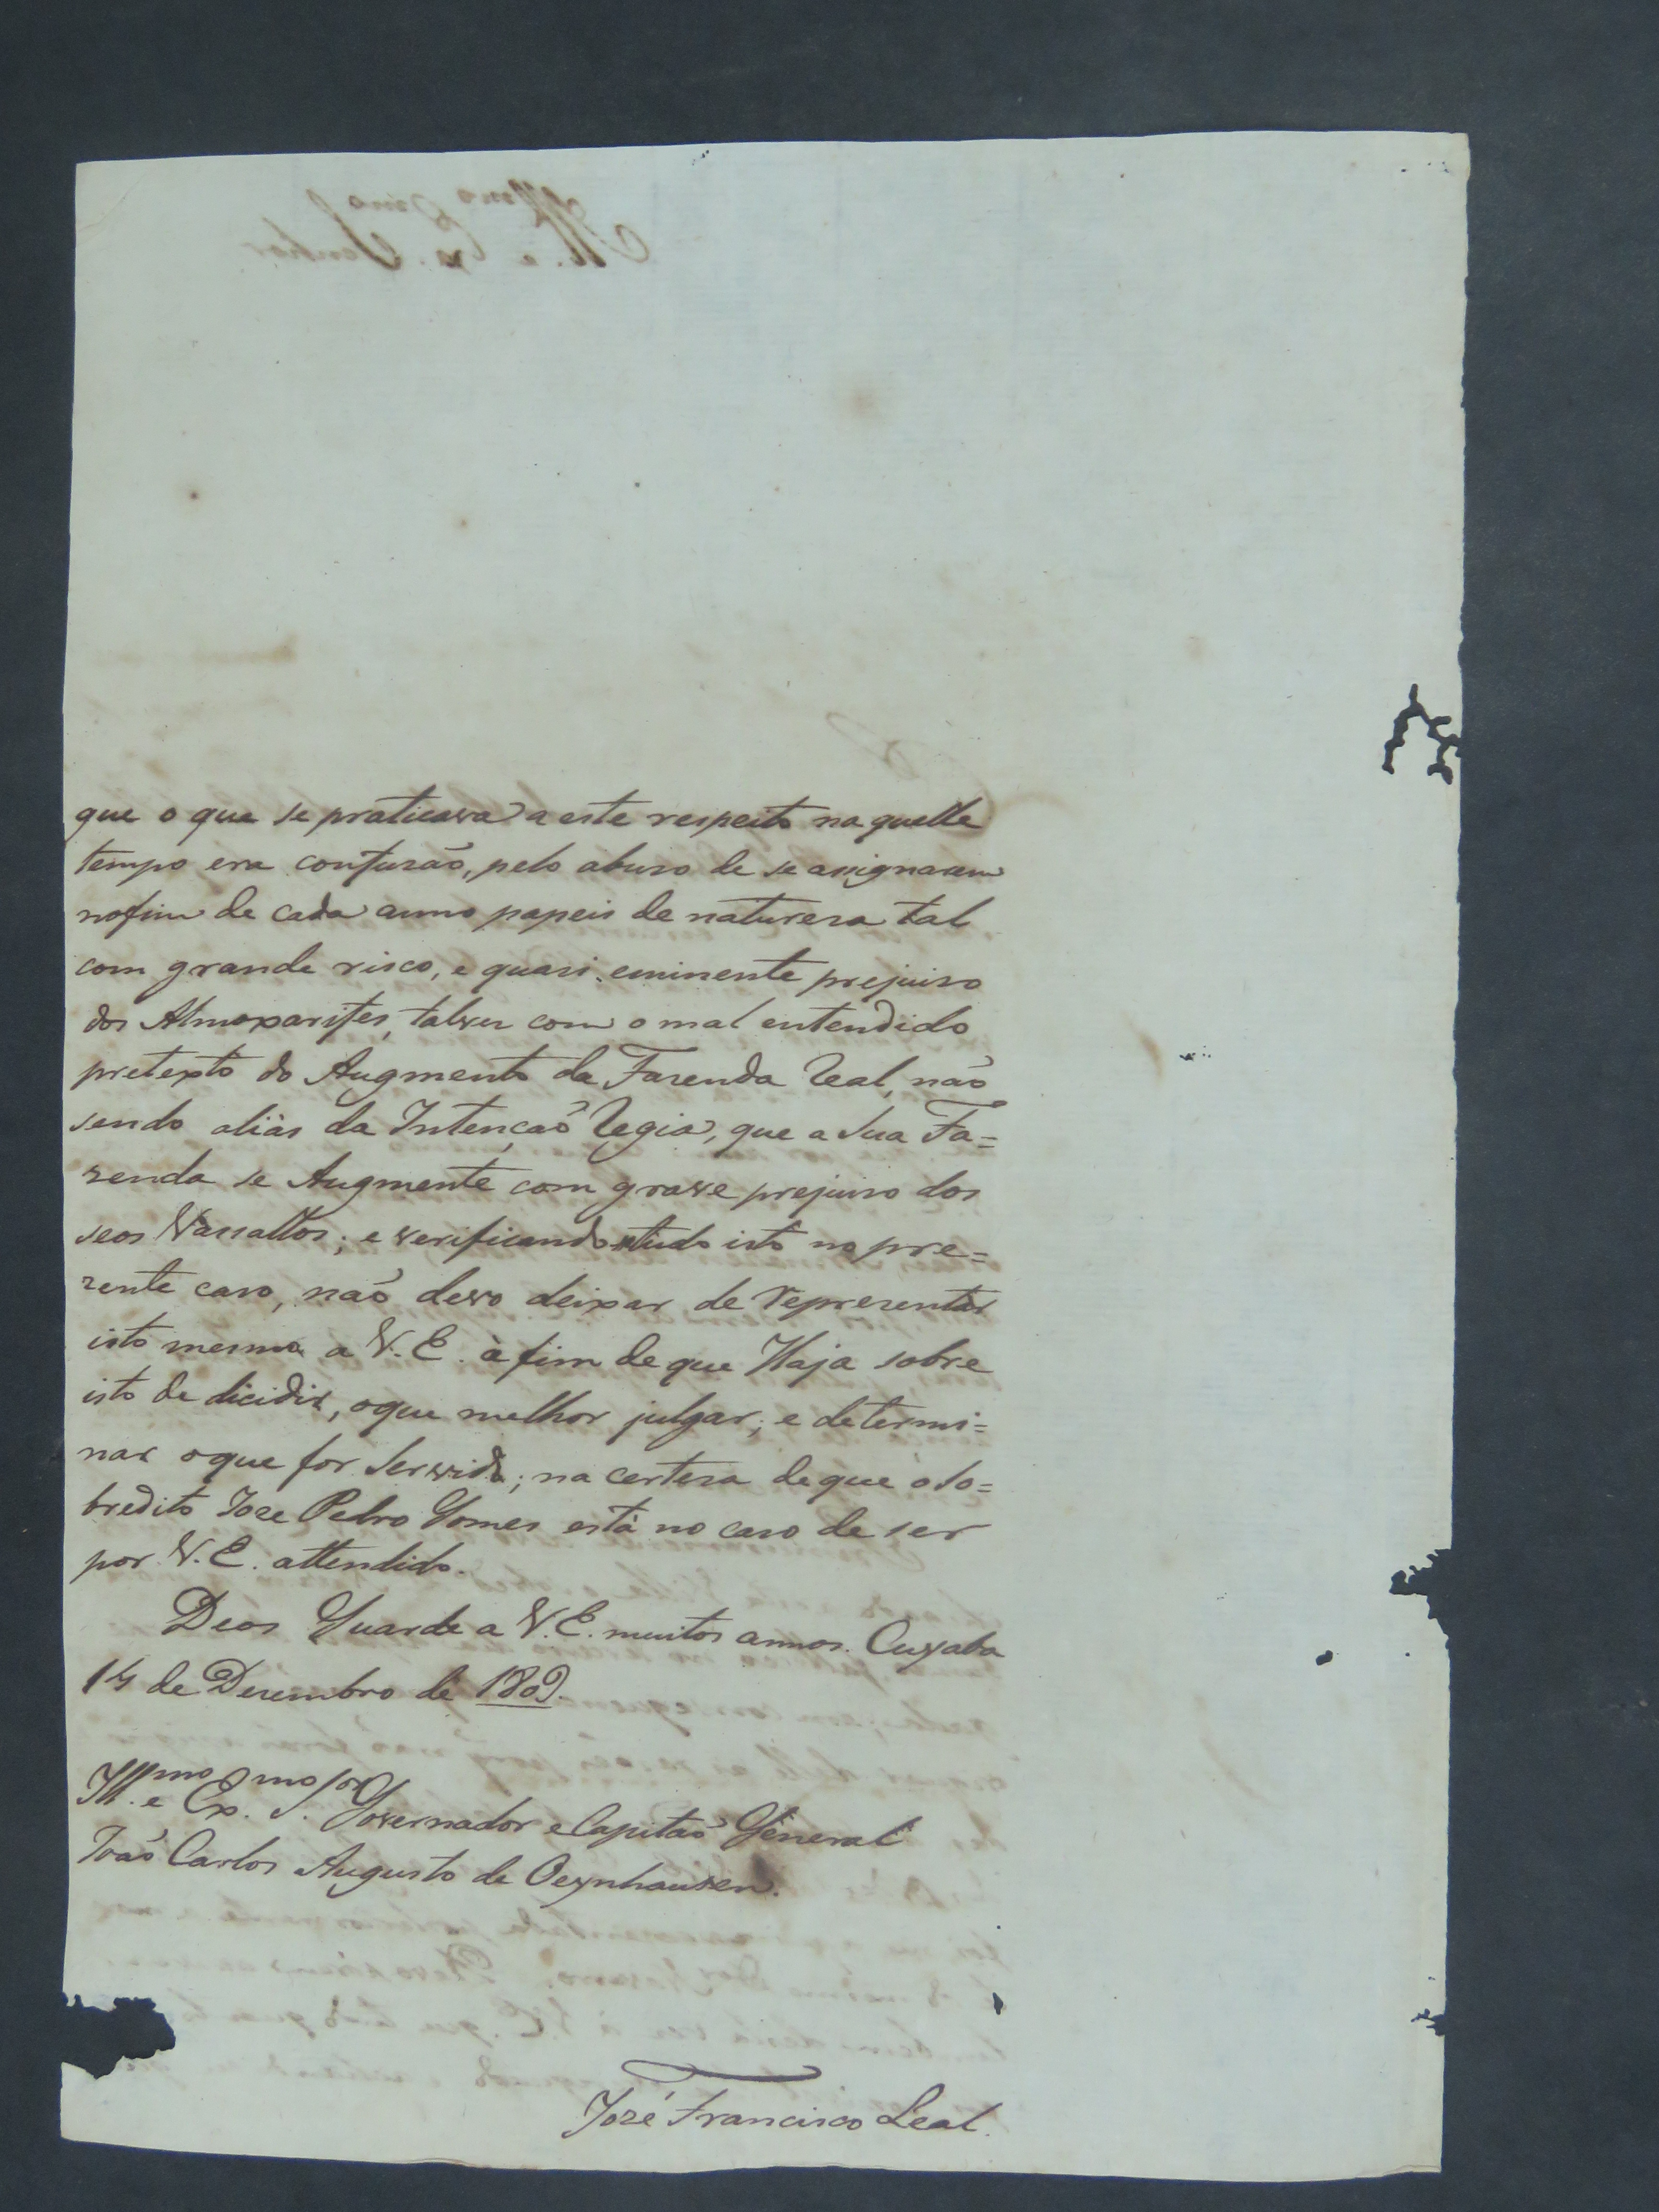 que o que se praticava a este respeito na quelle
tempo era confuzaõ, pelo abuso de se assignarem
nofim de cada anno papeis de natureza tal
com grande risco, e quasi eminente prejuizo
dos Almoxarifes, talvez com o mal entendido
pretexto do Augmento da Fazenda Real, naõ
sendo aliàs da Intençaõ Regia, que a Sua Fa=
zenda se Augmente com grave prejuizo dos
seos Vassallos; e verificando tudo isto no pre=
zente caso, naõ devo deixar de representar
isto mesmo a V. E. à fim de que Haja sobre
isto de dicidir, oque melhor julgar; e determi=
nar oque for Servido; na certeza de que o So=
bredito Joze Pedro Gomes està no caso de ser
por V. E. attendido.
Deos Guarde a V. E. muitos annos. Cuyaba
14 de Dezembro de 1809.
Ill.mo e Ex.mo S.or Governador e Capitaõ General
Joaõ Carlos Augusto de Oeynhausen.
Jozé Francisco Leal.